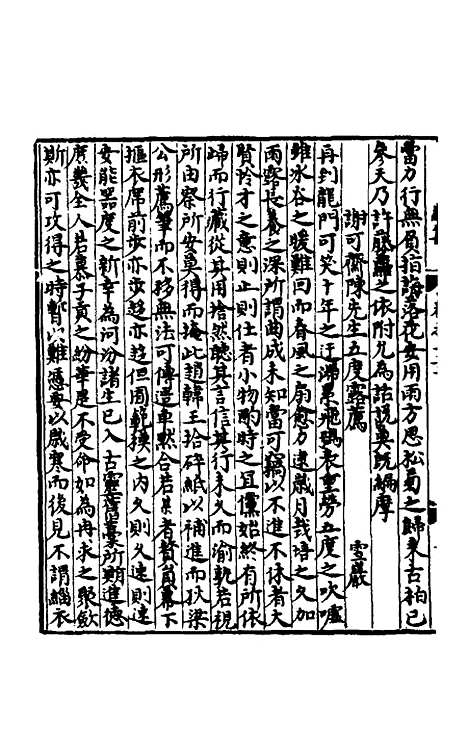 當力行無負指誨落花安用雨方思松菊之歸來古柏已
參天乃許藤蘿之依附尤為詒說莫既編摩
謝可齋陳先生五度露薦 雪巖
再到龍門可笑十年之汙漫累飛鶚表重勞五度之吹噓
雖冰谷之暖難回而春風之扇愈力遠歲月栽培之久加
雨露長養之深所謂曲成未知當可竊以不進不休者大
賢恠才之意則止則仕者小物酌時之宜儻始終有所依
歸而行藏從其用捨然聽其言信其行未久而渝執若視
所由察所安莫得而掩此趙韓王拾碎紙以補進而狄梁
公形薦筆而不移無法可傳造車默合若某者贄負幕下
摳衣席前步亦步趨亦趨但囿範模之內久則久速則速
安能器度之新幸為河汾諸生已入古靈舊藁所期進德
庶幾全人若慕子貢之紛華屢不受命如為冉求之聚斂
斯亦可攻得之時暫以難憑要以歲寒而後見不謂緇衣